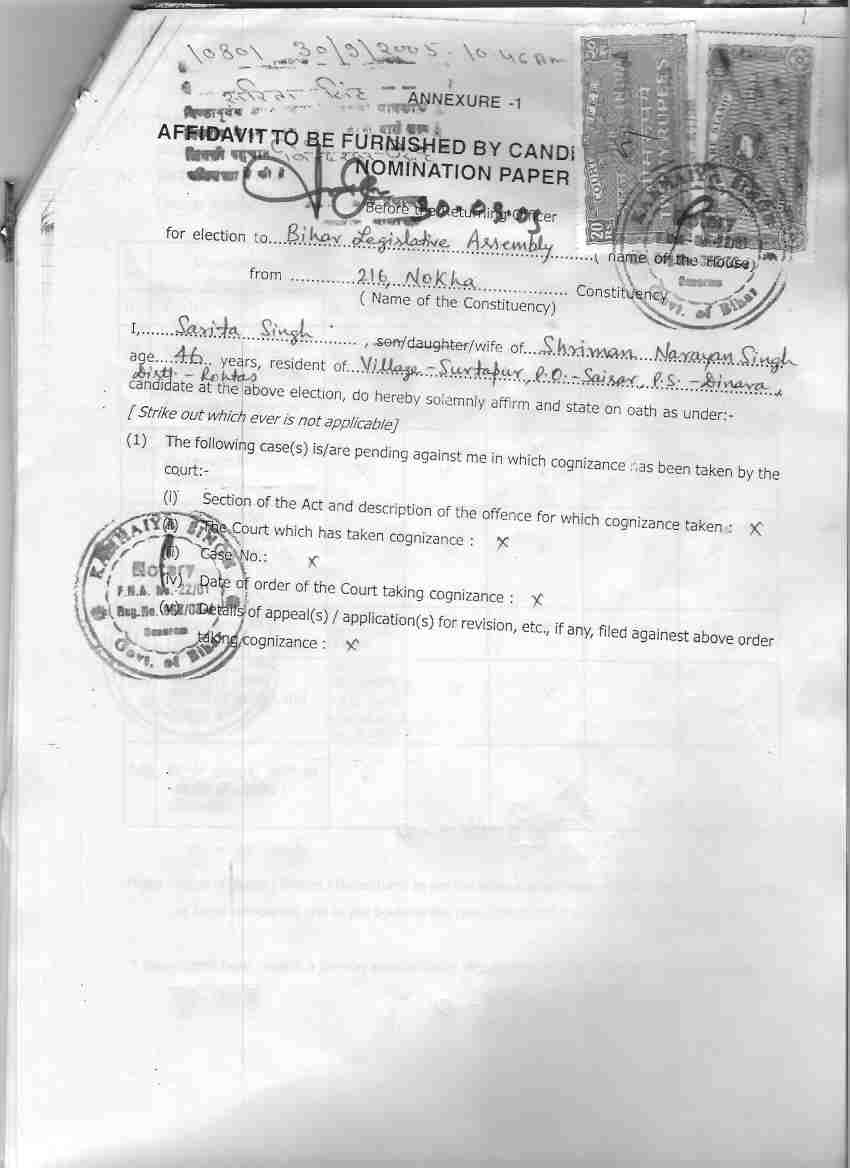 10801 30/9/2005. 10 45 AM
सरिता सिंह
ANNEXURE -1
AFFIDAVIT TO BE FURNISHED BY CANDI
NOMINATION PAPER
Before the Returning Officer
for election to Bihar Legislative Assembly ( name of the House)
from 216, Nokha Constituency
( Name of the Constituency)
I, Sarita Singh , son/daughter/wife of Shriman Narayan Singh
age 46 years, resident of Village - Surtapur, P.O. - Saisar, P.S. - Dinara,
Distt - Rohtas
candidate at the above election, do hereby solemnly affirm and state on oath as under:-
[ Strike out which ever is not applicable]
(1) The following case(s) is/are pending against me in which cognizance has been taken by the
court:-
(i) Section of the Act and description of the offence for which cognizance taken : X
(ii) The Court which has taken cognizance : X
(iii) Case No.: X
(iv) Date of order of the Court taking cognizance : X
(v) Details of appeal(s) / application(s) for revision, etc., if any, filed againest above order
taking cognizance : X
KANHAIYA SINGH
Notary
Sasaram
Govt. of Bihar